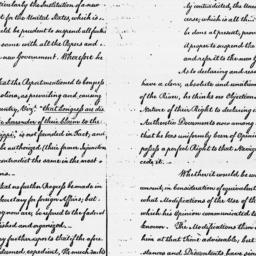 ticularly the Institution of a new
nt for the United States, which is
uld be prudent to suspend all further
same with all the Papers and
new Government. Wherefore he
at the Report mentioned to Congress
asions, as preventing and causing
ountry, Viz. "that Congress are dis
Surrender of their Claim to the
ippi" is not founded in Fact; and
be authorized
contradict the same in the most
s.
at no further Progress be made in
Secretary for foreign Affairs; but
ng ones be referred to the federal
blished and organized.
y further reports that if the afore
deemed expedient,
ly contradicted, the
cers; which is all this
be done at present,
it proper to suspend the
and refer it to the new
As to declaring and
have a clear, absolute and
of the River, he thinks no Objection
Nature of their Right to declaring
Authentic Documents now among
that he has uniformly been of Opinion
possess a perfect Right to that Navig
cede it.
Whether it would be
ument, in consideration of equivalent
what Modifications of the Use of th
which his Opinion communicated to
known. The Modifications then
him at that Time adviseable; but
stances and Discontents have since